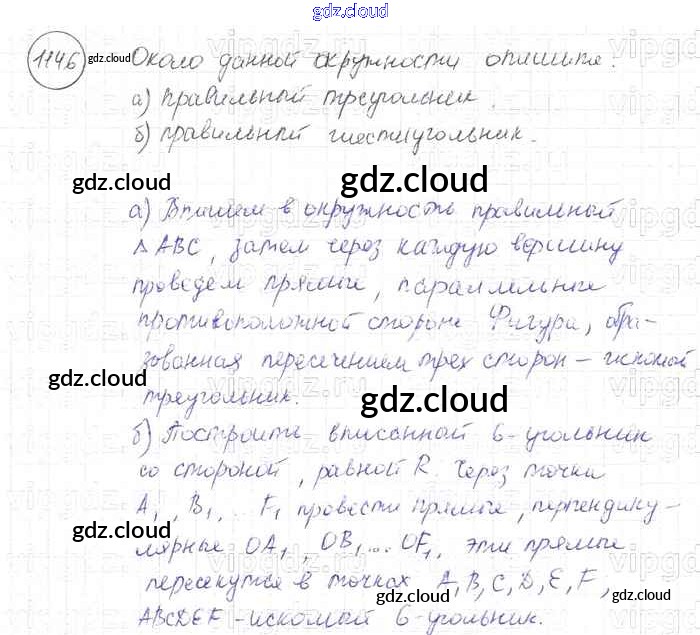 gdz.cloud
1146 gdz.cloud Около данной окружности опишите:
а) правильный треугольник.
б) правильный шестиугольник.
gdz.cloud gdz.cloud
а) Впишем в окружность правильный
Δ ABC, затем через каждую вершину
проведем прямые, параллельные
противоположной стороне. Фигура, обра-
зованная пересечением трех сторон – искомый
gdz.cloud
треугольник.
gdz.cloud
б) Построить вписанный 6-угольник
со стороной, равной R. Через точки
A₁, B₁, ... F₁ провести прямые, перпендику-
gdz.cloud
лярные OA₁, OB₁, ... OF₁, эти прямые
пересекутся в точках A, B, C, D, E, F,
gdz.cloud gdz.cloud
ABCDEF – искомый 6-угольник.